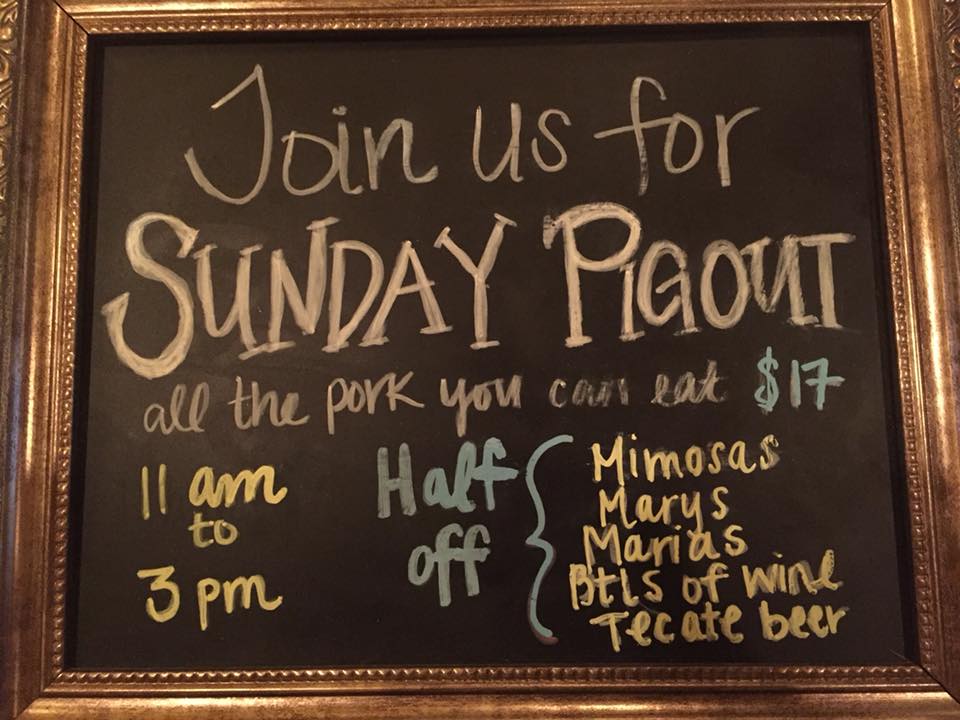 Join us for
SUNDAY PIGOUT
all the pork you can eat $17
11 am
to
3 pm
Half
off
Mimosas
Marys
Marias
Btls of wine
Tecate beer